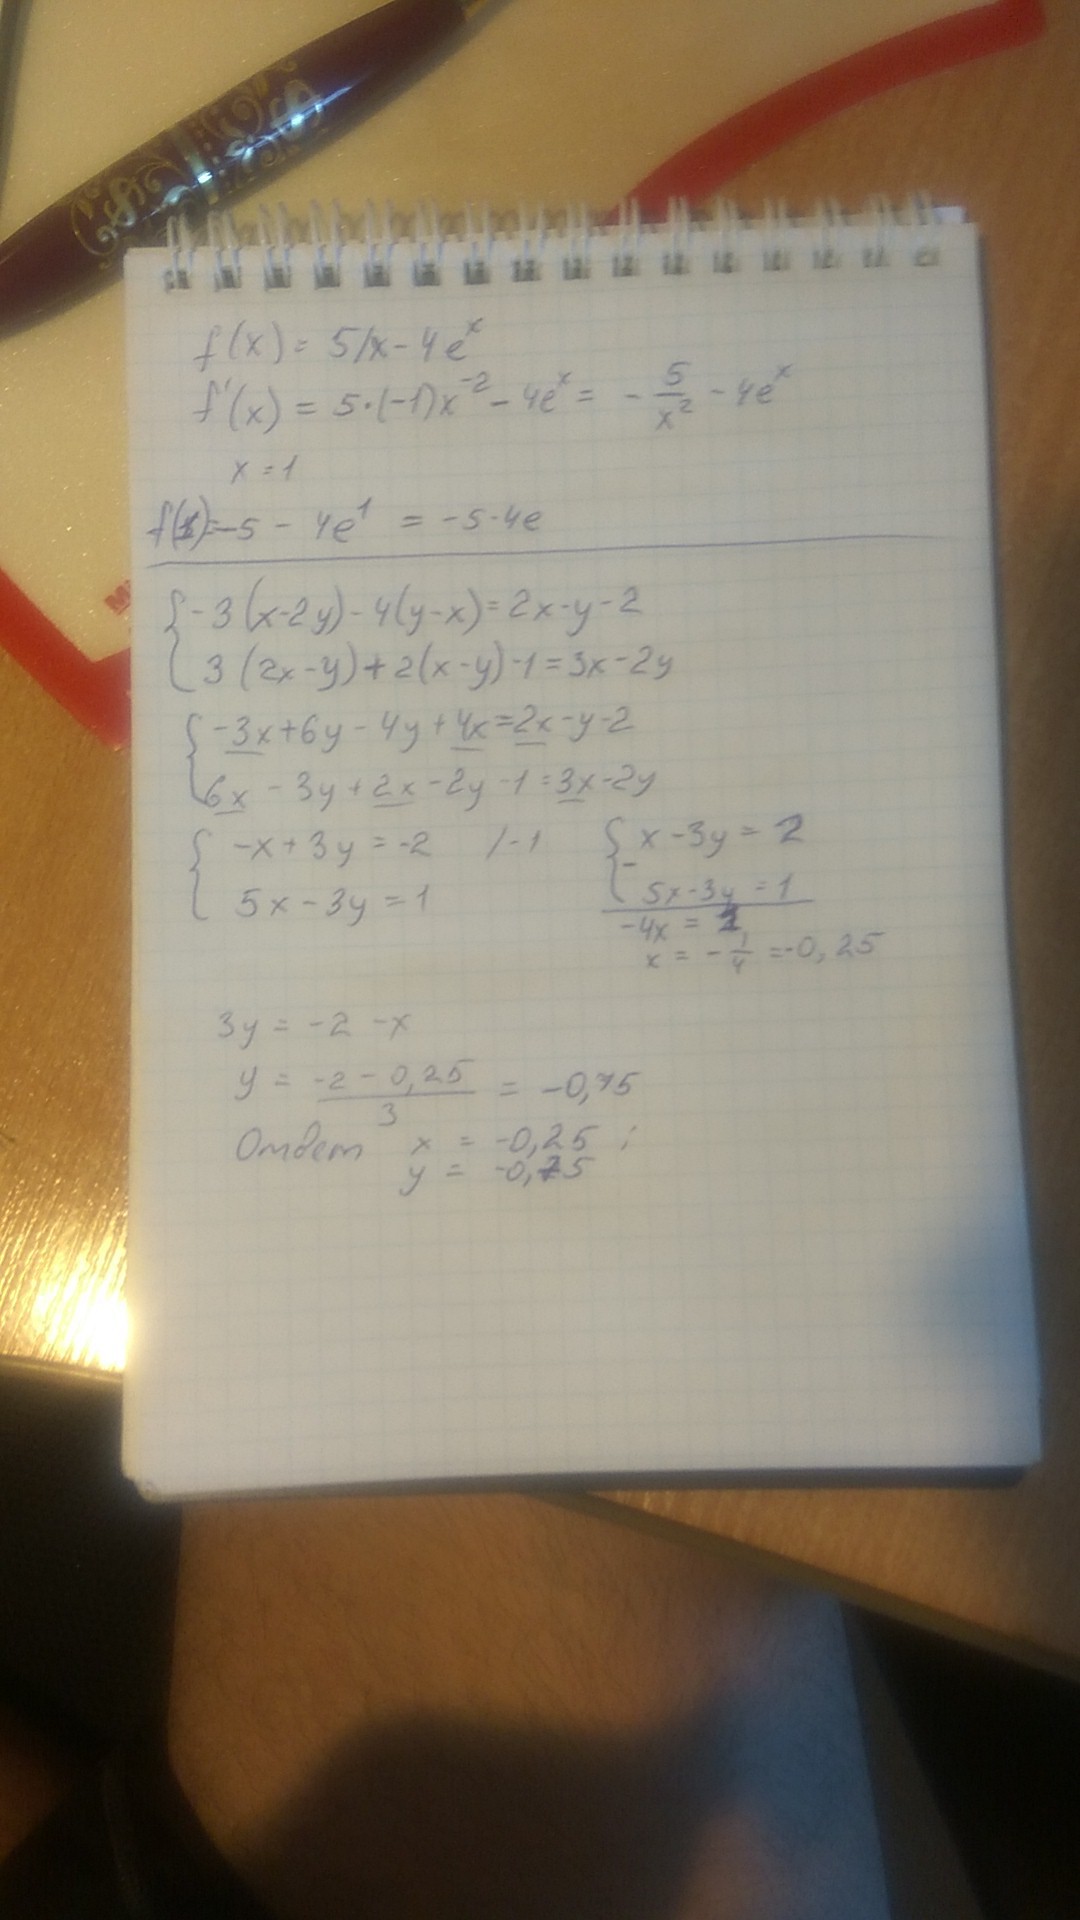 f(x) = 5/x - 4e^x
f'(x) = 5·(-1)x^-2 - 4e^x = - 5/x^2 - 4e^x
x = 1
f(1) = -5 - 4e^1 = -5-4e
{ -3(x-2y)-4(y-x)=2x-y-2
3(2x-y)+2(x-y)-1=3x-2y
{ -3x+6y-4y+4x=2x-y-2
6x-3y+2x-2y-1=3x-2y
{ -x+3y=-2 /-1
5x-3y=1
{ x-3y=2
- 5x-3y=1
-4x = 1
x = -1/4 = -0,25
3y = -2 -x
y = (-2-0,25)/3 = -0,75
Ответ x = -0,25 ;
y = -0,75